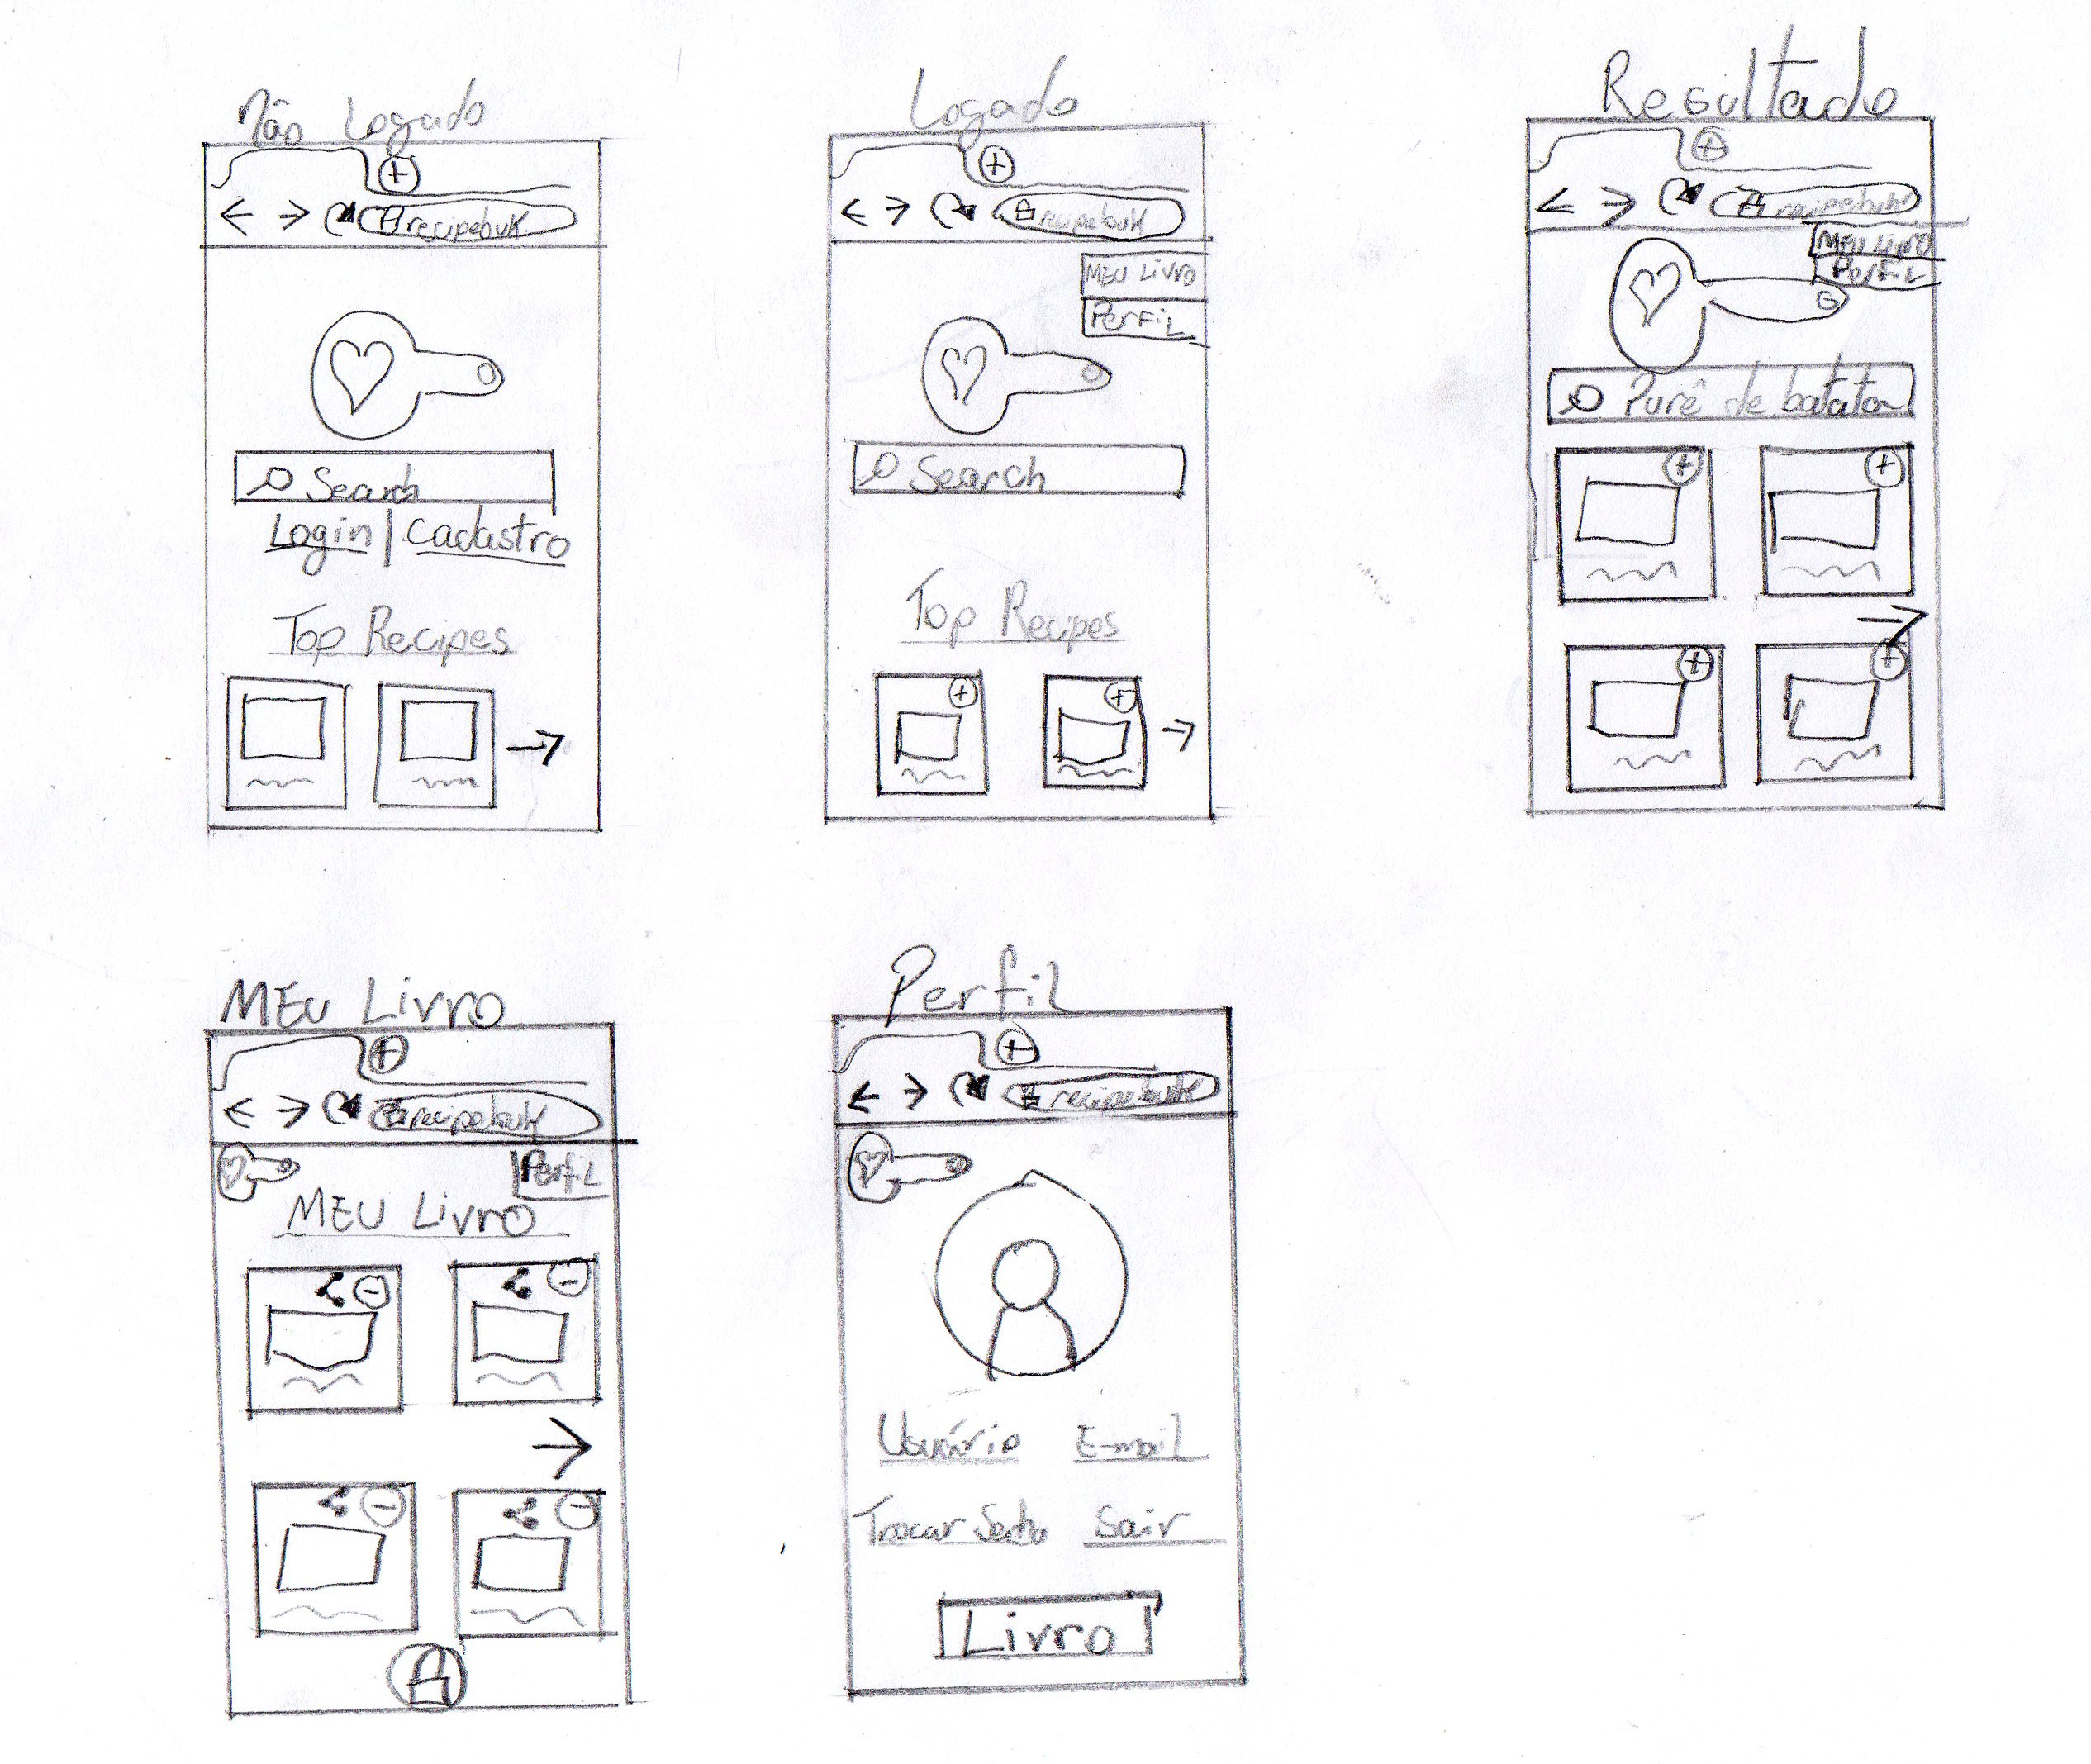 Não Logado
recipebuk
Search
Login | Cadastro
Top Recipes
Logado
recipebuk
MEU LIVRO
PERFIL
Search
Top Recipes
Resultado
recipebuk
MEU LIVRO
PERFIL
Purê de batata
MEU LIVRO
recipebuk
PERFIL
MEU LIVRO
Perfil
recipebuk
Usuário E-mail
Trocar Senha Sair
Livro